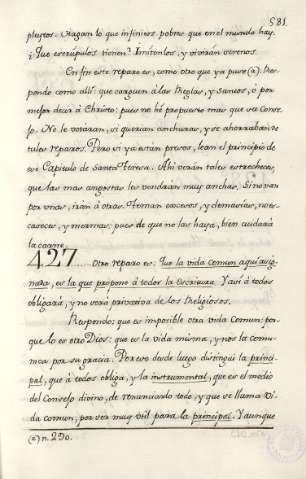 581
pleytos. Hagan lo que infinitos pobres que en el mundo hay.
¿Que escrúpulos tienen? Imítenlos, y vivirán serenos.
En fin este reparo es, como otro que ya puse (a). Res-
pondo como allí: que carguen á las Reglas, y Santos, ó por
mejor decir á Christo; pues no há propuesto mas que su Conse-
jo. No le votáran, si querian anchuras, y se ahorraban de
tales reparos. Pero si ya están presos, lean el principio de
ese Capitulo de Santa Teresa. Ahí verán tales estrecheces,
que las mas angostas les vendrán muy anchas. Si no van
por unas, irán á otras. Teman excesos, y demasías, no es-
caseces, y mermas; pues de que no las haya, bien cuidará
la carne.
427. Otro reparo es: Que la vida comun aqui asig-
nara, es la que propone á todos la Escritura. Y asi á todos
obligará, y no será privativa de los Religiosos.
Respondo: que es imposible otra vida comun: por-
que lo es otro Dios: que es la vida misma, y nos la comu-
nica por su gracia. Por eso desde luego distinguí la princi-
pal, que á todos obliga, y la instrumental, que es el medio
del Consejo divino, de renunciarlo todo, y que se llama Vi-
da comun, por ser muy util para la principal. Y aunque
(a) n. 290.